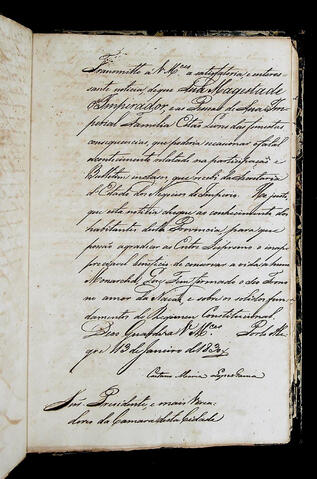 Transmitto á V. M.ces a satisfatoria e interes-
sante noticia, de que Sua Magestade
O Imperador, e as Pessoas de Sua Im-
perial Familia Estão livres das funestas
consequencias, que poderia occasionar o fatal
acontecimento relatado na participação e
Bulletim inclusos, que recebi da Secretaria
d'Estado dos Negocios do Imperio. He justo,
que esta noticia chegue ao conhecimento dos
habitantes desta Provincia para que
possão agradecer ao Entes Supremo o
beneficio de conservar a vida a hum
Monarcha, que Tem firmado o seo Throno
no amor da Nação, e sobre os solidos fun-
damentos do Regimen Constitucional.
Deos Guarde a V. M.ces Porto Ale-
gre 13 de Janeiro de 1830
Caetano Maria Lopes Gama
Snr. Presidente, e mais Verea-
dores da Camara desta Cidade